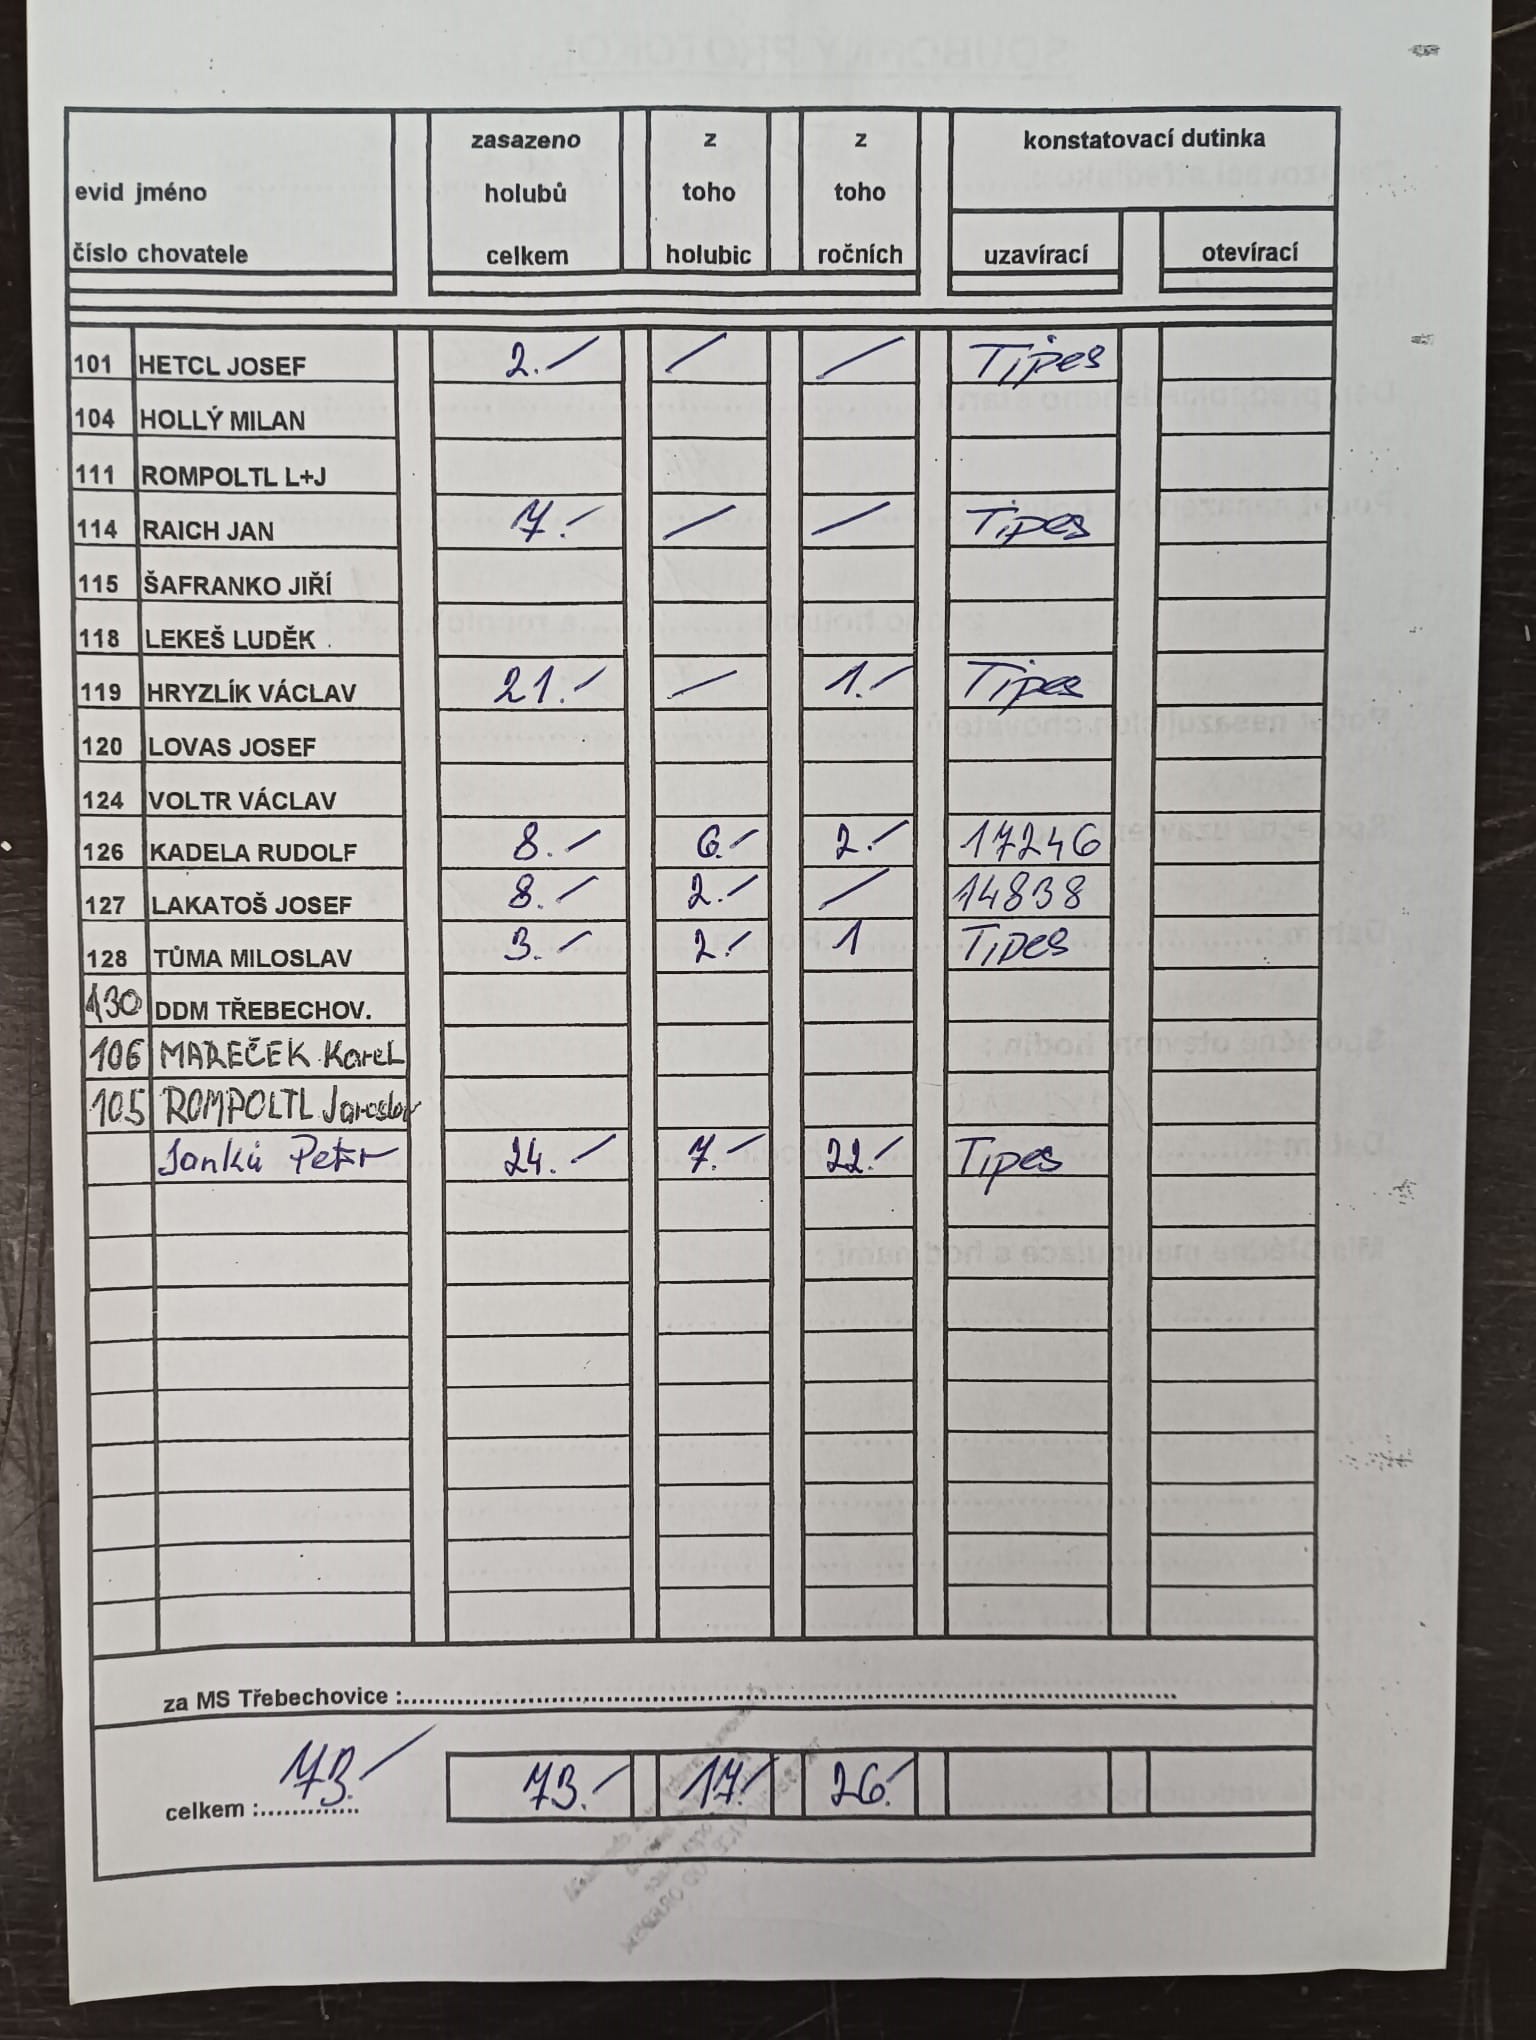 zasazeno z z konstatovací dutinka
evid jméno holubů toho toho
číslo chovatele celkem holubic ročních uzavírací otevírací
101 HETCL JOSEF 2.- / / Tipes
104 HOLLÝ MILAN
111 ROMPOLTL L+J
114 RAICH JAN 7.- / / Tipes
115 ŠAFRANKO JIŘÍ
118 LEKEŠ LUDĚK
119 HRYZLÍK VÁCLAV 21.- / 1.- Tipes
120 LOVAS JOSEF
124 VOLTR VÁCLAV
126 KADELA RUDOLF 8.- 6.- 2.- 17246
127 LAKATOŠ JOSEF 8.- 2.- / 14838
128 TŮMA MILOSLAV 3.- 2.- 1 Tipes
130 DDM TŘEBECHOV.
106 MAREČEK Karel
105 ROMPOLTL Jaroslav
Janků Petr 24.- 7.- 22.- Tipes
za MS Třebechovice :
celkem : 73.- 73.- 17.- 26.-